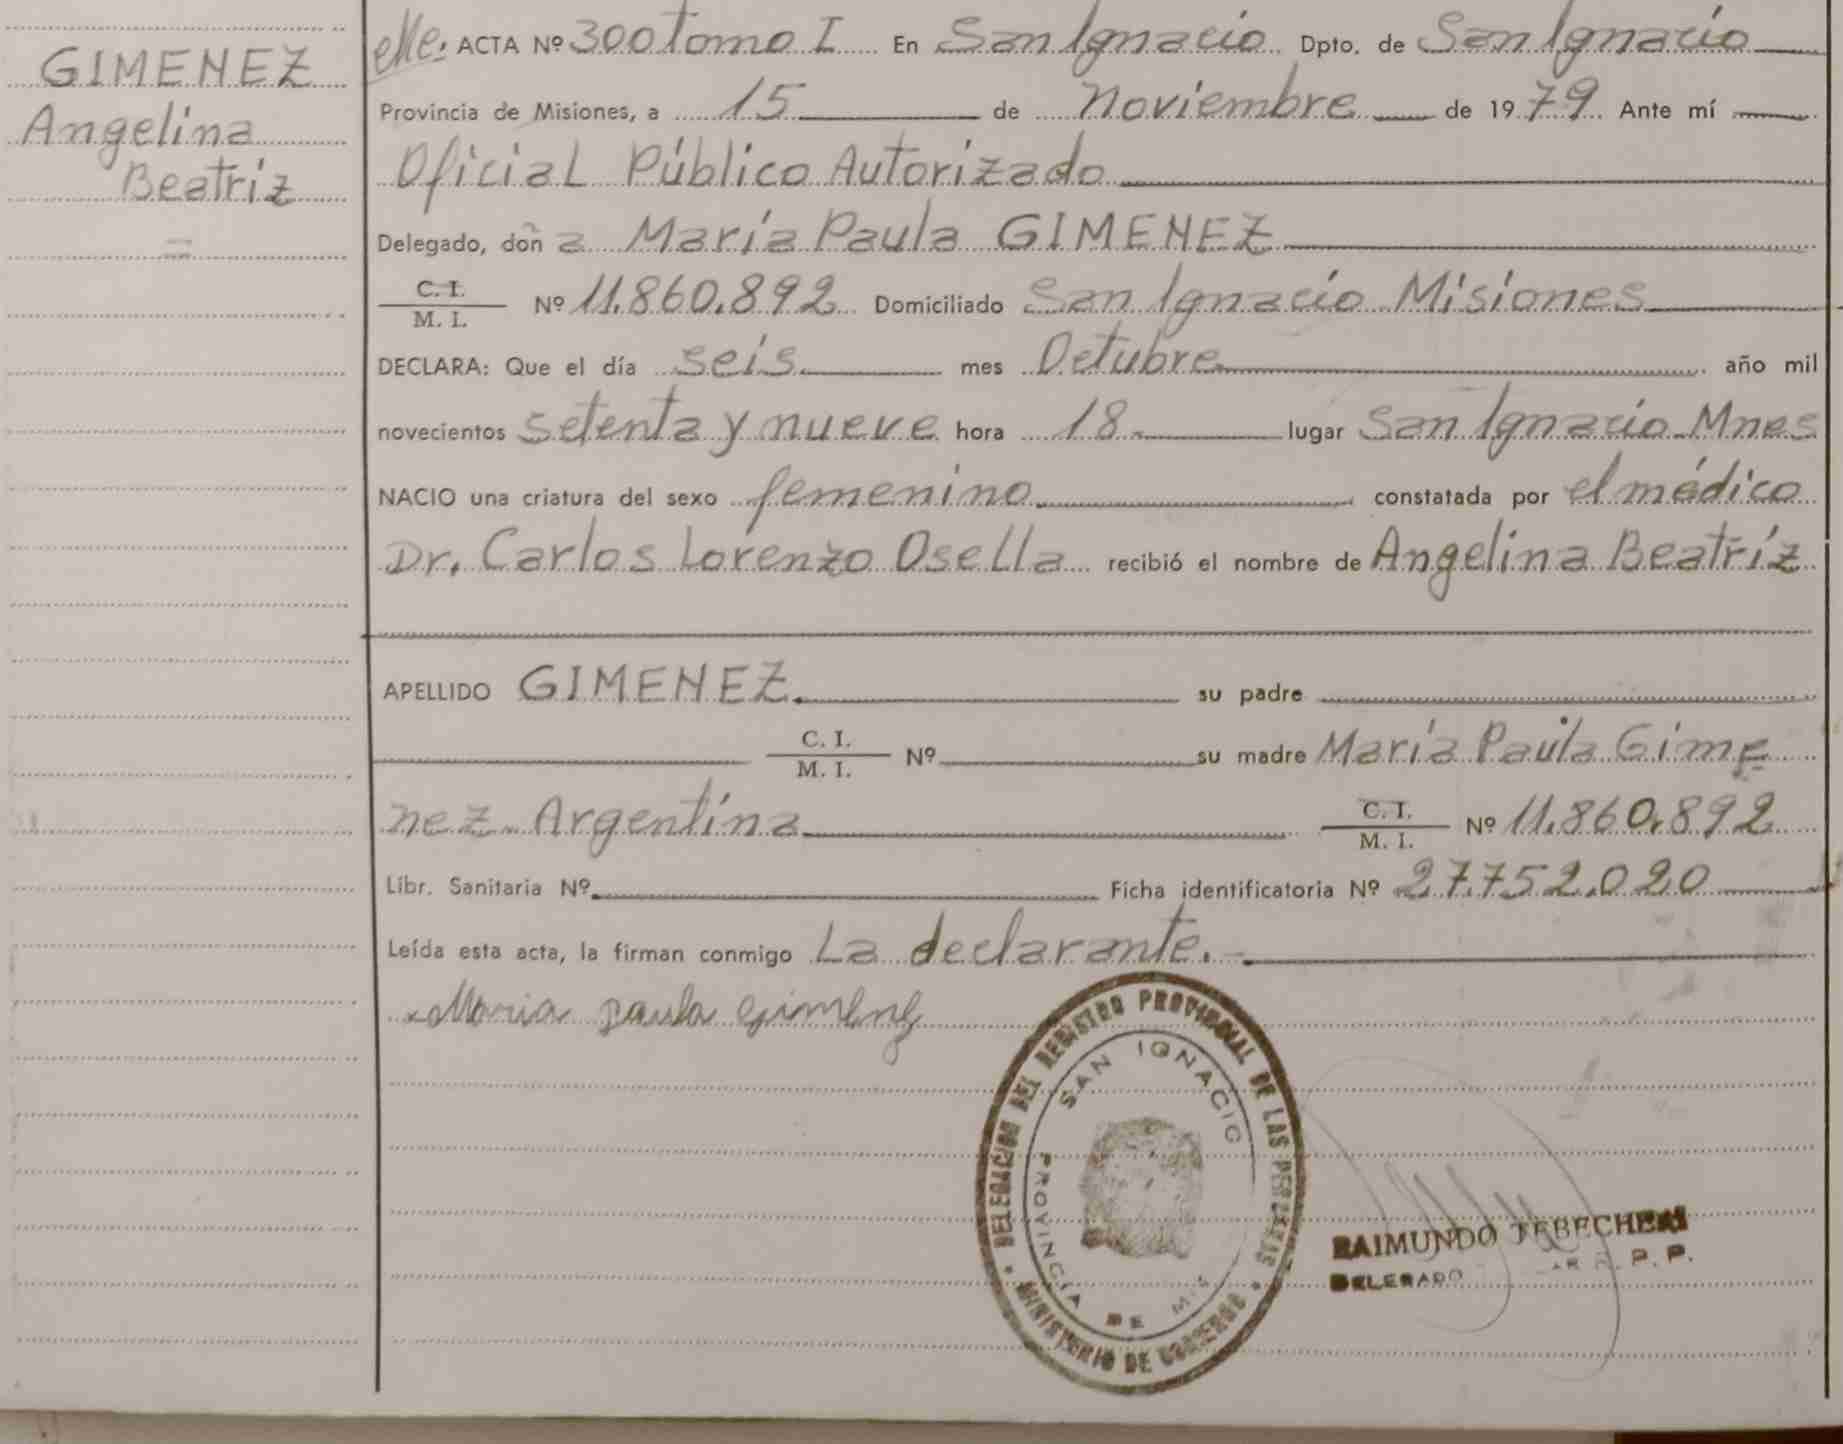 GIMENEZ
Angelina
Beatriz
ACTA Nº 300 Tomo I En San Ignacio Dpto. de San Ignacio
Provincia de Misiones, a 15 de Noviembre de 1979. Ante mí
Oficial Público Autorizado
Delegado, doña María Paula GIMENEZ
C. I.
M. I. Nº 11.860.892 Domiciliado San Ignacio Misiones
DECLARA: Que el día seis mes Octubre año mil
novecientos setenta y nueve hora 18 lugar San Ignacio Mnes
NACIO una criatura del sexo femenino constatada por el médico
Dr. Carlos Lorenzo Osella recibió el nombre de Angelina Beatríz
APELLIDO GIMENEZ su padre
C. I.
M. I. Nº su madre María Paula Gime
nez Argentina C. I.
M. I. Nº 11.860.892
Libr. Sanitaria Nº Ficha identificatoria Nº 27.752.020
Leída esta acta, la firman conmigo La declarante.
Maria paula gimenez
DELEGACION DEL REGISTRO PROVINCIAL DE LAS PERSONAS
SAN IGNACIO
PROVINCIA DE
MINISTERIO DE GOBIERNO
RAIMUNDO
DELEGADO R. P. P.